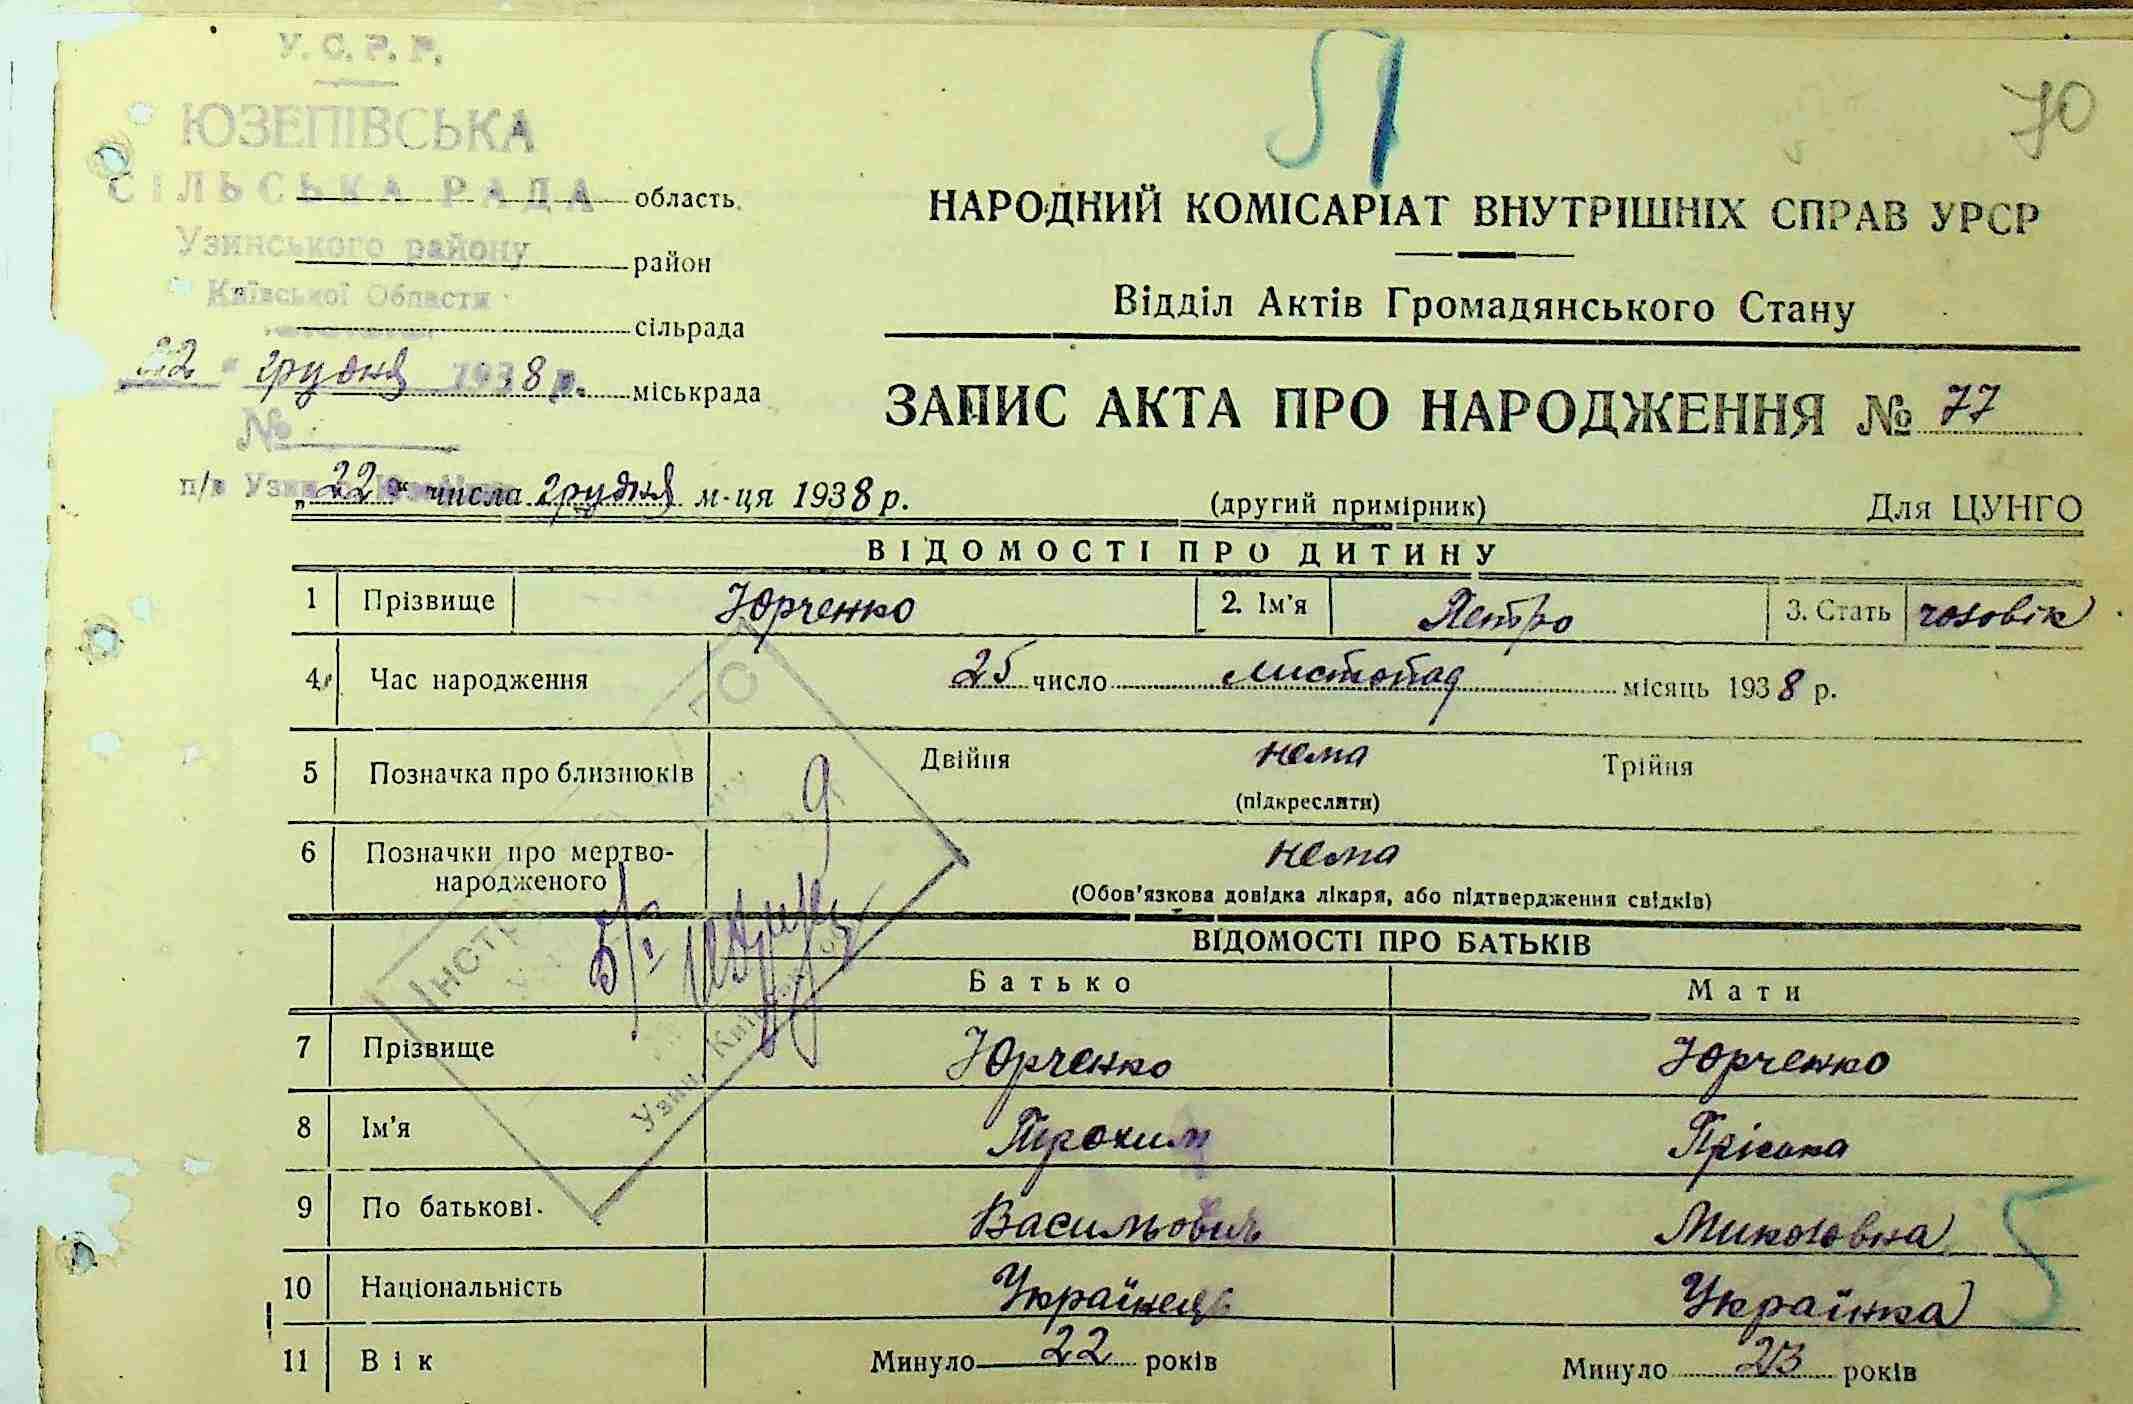 У. С. Р. Р.
ЮЗЕПІВСЬКА
СІЛЬСЬКА РАДА
Узинського району
Київської Области
22 " грудня 1938 р.
№
п/в Узин
область
район
сільрада
міськрада
51
70
НАРОДНИЙ КОМІСАРІАТ ВНУТРІШНІХ СПРАВ УРСР
Відділ Актів Громадянського Стану
ЗАПИС АКТА ПРО НАРОДЖЕННЯ № 77
„22“ числа грудня м-ця 1938 р. (другий примірник) Для ЦУНГО
ВІДОМОСТІ ПРО ДИТИНУ
1 Прізвище Юрченко 2. Ім'я Петро 3. Стать чоловік
4 Час народження 25 число листопад місяць 1938 р.
5 Позначка про близнюків Двійня нема Трійня
(підкреслити)
6 Позначки про мертво-
народженого нема
(Обов'язкова довідка лікаря, або підтвердження свідків)
ВІДОМОСТІ ПРО БАТЬКІВ
Батько Мати
7 Прізвище Юрченко Юрченко
8 Ім'я Трохим Пріська
9 По батькові Васильович Миколовна
10 Національність Українець Українка
5
11 Вік Минуло 22 років Минуло 23 років